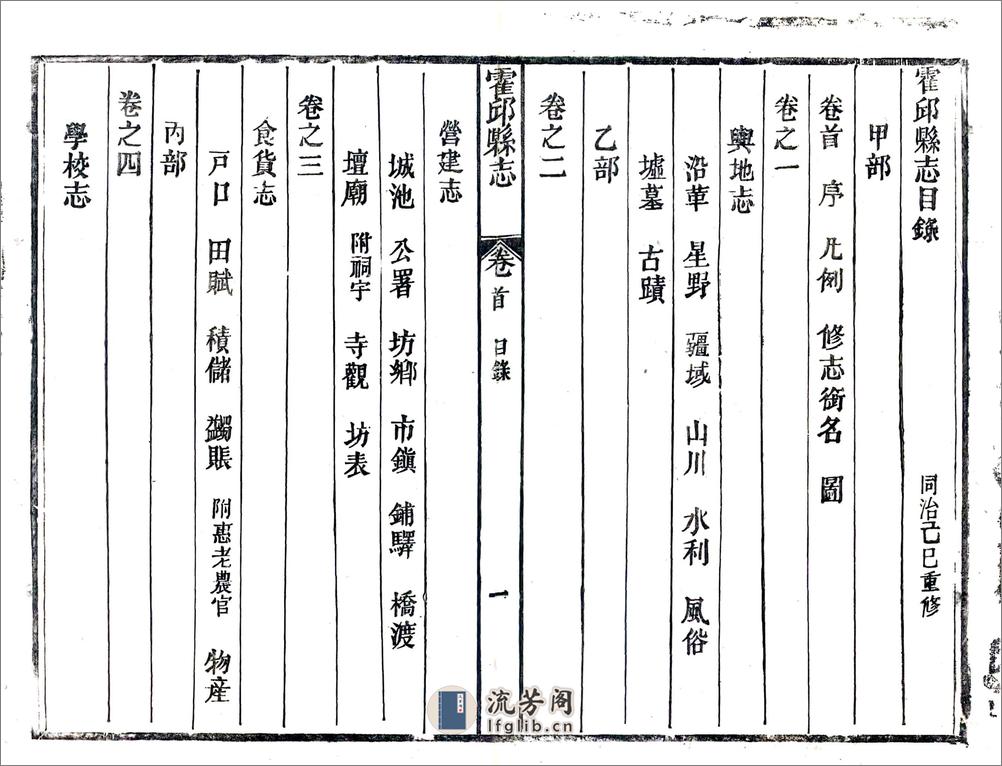 霍邱縣志目錄 同治己巳重修
甲部
卷首 序 凡例 修志銜名 圖
卷之一
輿地志
沿革 星野 疆域 山川 水利 風俗
墟墓 古蹟
乙部
卷之二
霍邱縣志 卷首 目錄 一
營建志
城池 公署 坊鄉 市鎮 鋪驛 橋渡
壇廟 附祠宇 寺觀 坊表
卷之三
食貨志
戸口 田賦 積儲 蠲賑 附惠老農官 物産
丙部
卷之四
學校志
流芳阁
lfglib.cn